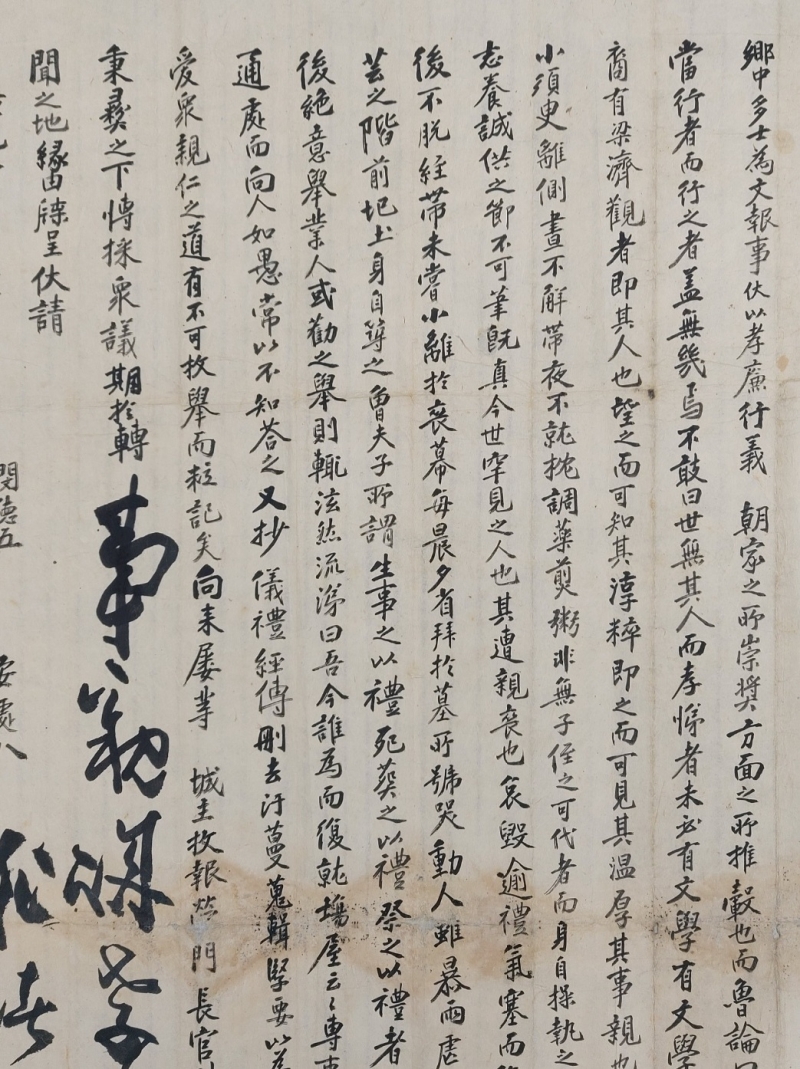 鄕中多士為文報事伏以孝廉行義 朝家之所崇奬方面之所推轂也而魯論
當行者而行之者盖無幾焉不敢曰世無其人而孝悌者未必有文學有文學
裔有梁濟觀者即其人也望之而可知其淳粹即之而可見其温厚其事親也
小須臾離側晝不解帶夜不就枕調藥煎粥非無子侄之可代者而身自操執之
志養誠供之節不可筆旣真今世罕見之人也其遭親喪也哀毁逾禮氣塞而
後不脫絰帶未嘗小離於喪幕每晨夕省拜於墓所號哭動人雖暴雨虐
芸之階前圯土身自簣之魯夫子所謂生事之以禮死葬之以禮祭之以禮者
後絶意舉業人或勸之舉則輒泫然流涕曰吾今誰為而復就場屋云々專事
通處而向人如愚常以不知答之又抄 儀禮經傳刪去汗蔓蒐輯緊要以為
愛衆親仁之道有不可枚舉而粒記矣向来屡華 城主枚報營門 長官
秉彛之下愽採衆議期於轉
聞之地緣由牒呈伏請
閔德五